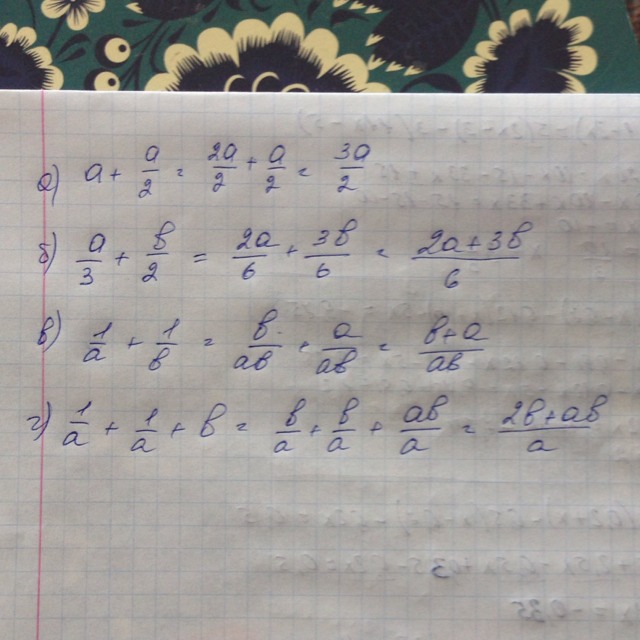 а) a + a/2 = 2a/2 + a/2 = 3a/2
б) a/3 + b/2 = 2a/6 + 3b/6 = 2a+3b/6
в) 1/a + 1/b = b/ab + a/ab = b+a/ab
г) 1/a + 1/a + b = b/a + b/a + ab/a = 2b+ab/a